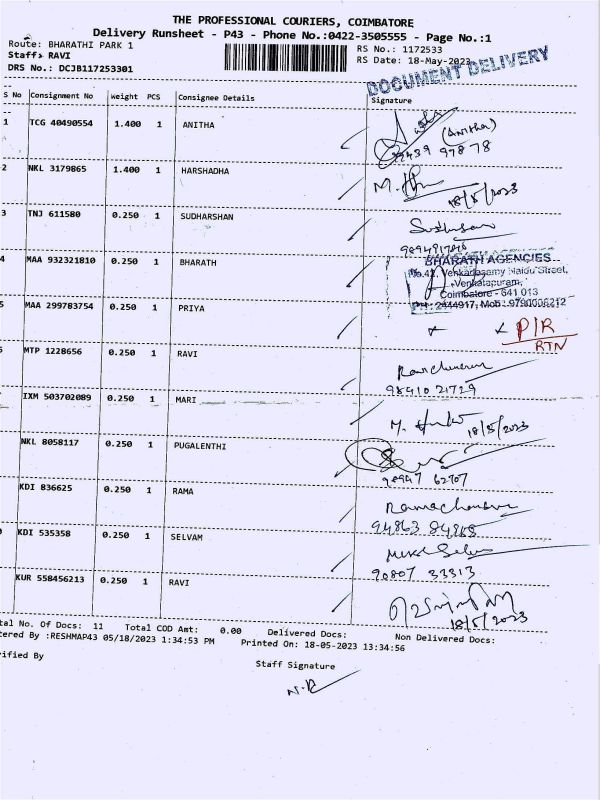 THE PROFESSIONAL COURIERS, COIMBATORE
Delivery Runsheet - P43 - Phone No.:0422-3505555 - Page No.:1
Route: BHARATHI PARK 1
RS No.: 1172533
Staff: RAVI
RS Date: 18-May-2023
DRS No.: DCJB117253301
DOCUMENT DELIVERY
S No Consignment No Weight PCS Consignee Details Signature
1 TCG 40490554 1.400 1 ANITHA
(Anitha)
99439 99878
2 NKL 3179865 1.400 1 HARSHADHA
18/5/2023
3 TNJ 611580 0.250 1 SUDHARSHAN
4 MAA 932321810 0.250 1 BHARATH
BHARATH AGENCIES
Venkadasamy Naidu Street,
Venkatapuram,
Coimbatore - 641 013
PH: 2444917, Mob: 9790006212
5 MAA 299783754 0.250 1 PRIYA
P/R
RTN
MTP 1228656 0.250 1 RAVI
98410 21729
IXM 503702089 0.250 1 MARI
18/5/2023
NKL 8058117 0.250 1 PUGALENTHI
KDI 836625 0.250 1 RAMA
KDI 535358 0.250 1 SELVAM
90807 33313
KUR 558456213 0.250 1 RAVI
18/5/2023
tal No. Of Docs: 11 Total COD Amt: 0.00 Delivered Docs: Non Delivered Docs:
tered By :RESHMAP43 05/18/2023 1:34:53 PM Printed On: 18-05-2023 13:34:56
rified By
Staff Signature